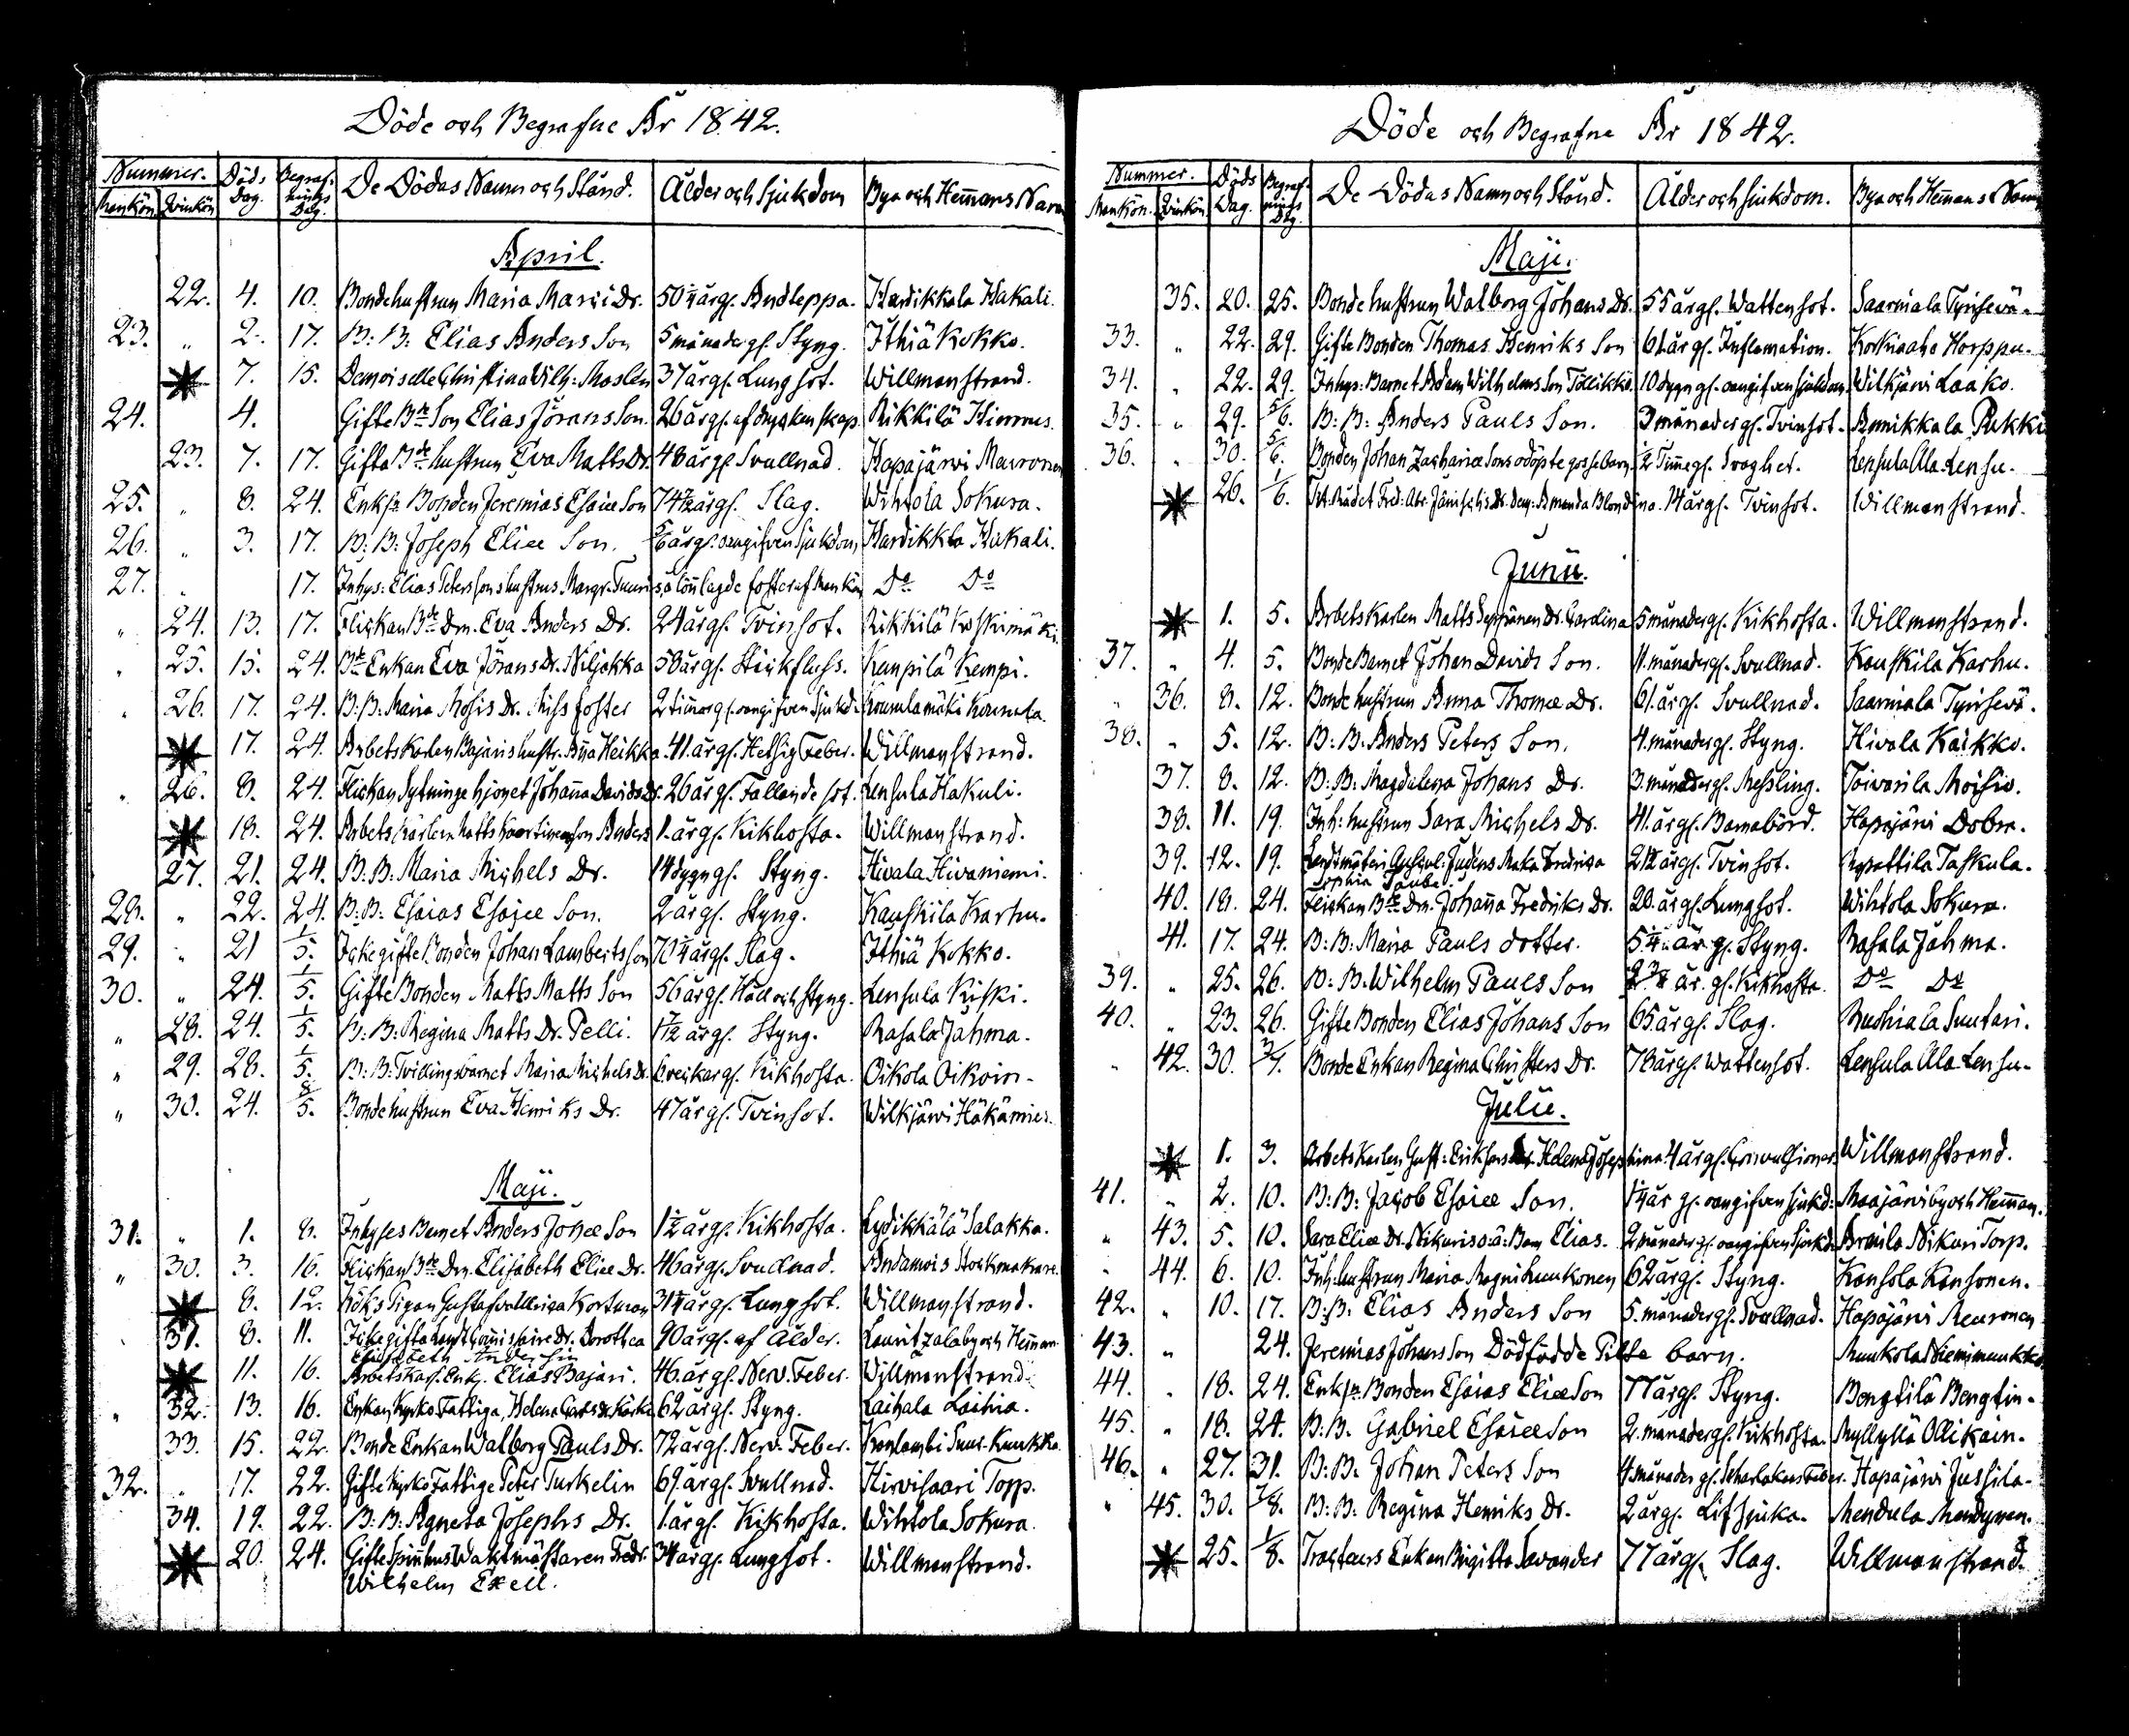 Döde och Begrafne År 1842.
Nummer. Döds Dag. Begrafnings Dag. De Dödas Namn och Stånd. Ålder och Sjukdom Bya och Hem̄ans Namn
Mankön Qvinkön
April.
22. 4. 10. Bondehustrun Maria Mari Dr. 50 1/4 årgl. Andteppa. Hardikkala Hakali.
23. „ 2. 17. B: B: Elias Anders Son 5 månader gl. Styng. Ithiä Kokko.
7. 15. Demoiselle Christina Vilh: Moslen 37 årgl. Lungsot. Willmanstrand.
24. 4. Gifte Bde Son Elias Jörans Son. 26 årgl. af dryckenskap. Rikkilä Himmus.
23. 7. 17. Gifta Bde hustrun Eva Matts Dr. 48 årgl. Svullnad. Hapajärvi Mauronen
25. „ 8. 24. Enkln Bonden Jeremias Esaiæ Son 74 1/2 årgl. Slag. Wihtola Sokura.
26. „ 3. 17. B: B: Joseph Eliæ Son. 5/6 årgl. oangifven Sjukdom, Hardikkla Hakali.
27. „ 17. Inhys: Elias Peterssons hustrus Margr. Tuuri's å lön̄ lagde foster af Mankön Do Do
„ 24. 13. 17. Flickan Bde Dn. Eva Anders Dr. 24 årgl. Tvinsot. Rikkilä Koskimäki.
„ 25. 15. 24. Bde Enkan Eva Jörans Dr. Niljakka 58 årgl. Stickfluss. Kempilä Kempi.
„ 26. 17. 24. B: B: Maria Mosis Dr. Miss foster 2 tim̄ar gl. oangifven Sjukd. Kounulamäki Kounula.
17. 24. Arbets Karlen Bajaris hustr. An̄a Heikka. 41. årgl. Hetsig Feber. Willmanstrand.
„ 26. 8. 24. Flickan Sytninge hjonet Johan̄a Davids Dr. 26 årgl. Fallande sot. Lensula Hakuli.
18. 24. Arbets Karlen Matts Haartinens son Anders 1. årgl. Kikhosta. Willmanstrand.
27. 21. 24. B: B: Maria Michels Dr. 14 dygn gl. Styng. Hivala Hivaniemi.
28. „ 22. 24. B: B: Esaias Esaiæ Son. 2 årgl. Styng. Kauskila Karhu.
29. „ 21 1/5. Icke gifte Bonden Johan Lamberts son 70 1/4 årgl. Slag. Ithiä Kokko.
30. „ 24. 1/5. Gifte Bonden Matts Matts Son 56 årgl. Håll och Styng. Lensula Kiski.
„ 28. 24. 1/5. B: B: Regina Matts Dr. Pelli. 1 7/12 årgl. Styng. Rasala Jahma.
„ 29. 28. 1/5. B: B: Tvillingsbarnet Maria Michels Dr. 6 veckar gl. Kikhosta. Oikola Oikoin.
„ 30. 24. 8/5. Bondehustrun Eva Henriks Dr. 47 årgl. Tvinsot. Wilkjärvi Häkämies.
Maji.
31. „ 1. 8. Inhyses Barnet Anders Johæ Son 1 1/2 årgl. Kikhosta. Lydikkälä Salakka.
„ 30. 3. 16. Flickan Bde Dn. Elisabeth Eliæ Dr. 46 årgl. Svullnad. Andamois Stockmakare.
8. 12. Köks Pigan Gustafva Ulrica Kortman 31 1/4 årgl. Lungsot. Willmanstrand.
31. 8. 11. Icke gifta Landt Com̄issaire Dr. Dorothea 90 årgl. af Ålder. Lauritzala by och Hem̄an.
Elisabeth Andersin
11. 16. Arbetskarl. Enkl. Elias Bajari. 46. årgl. Nerv. Feber. Willmanstrand.
„ 32. 13. 16. Enkan Kyrko Fattiga, Helena Carls dr. Kärki 62 årgl. Styng. Laihala Laihia.
33. 15. 22. Bonde Enkan Walborg Pauls Dr. 72 årgl. Nerv. Feber. Konlambi Suur-Kuukka.
32. „ 17. 22. Gifte Kyrko Fattige Peter Turkelin 69. årgl. Svullnad. Hirvisaari Torp.
34. 19. 22. B: B: Agneta Josephs Dr. 1. årgl. Kikhosta. Wihtola Sokura.
20. 24. Gifte Spinhus Waktmästaren Fredr. 34 årgl. Lungsot. Willmanstrand.
Wilhelm Exell.
Döde och Begrafne År 1842.
Nummer. Döds Dag. Begrafnings Dag. De Dödas Namn och Stånd. Ålder och Sjukdom. Bya och Hem̄ans Namn
Mankön. Qvinkön
Maji.
35. 20. 25. Bondehustrun Walborg Johans Dr. 55 årgl. Wattensot. Saarniala Tyrisevä.
33. „ 22. 29. Gifte Bonden Thomas Henriks Son 61. årgl. Inflamation. Korkiaaho Horppu.
34. „ 22. 29. Inhys: Barnet Adam Wilhelms Son Tollikko. 10 dygn gl. oangifven Sjukdom. Wilkjärvi Laako.
35. „ 29. 5/6. B: B: Anders Pauls Son. 3 månader gl. Tvinsot. Armikkala Pukki
36. „ 30. 5/6. Bonden Johan Zachariæ Sons odöpte gosse barn. 1/2 Tim̄e gl. Svaghet. Lensula Ala-Lensu.
26. 1/6. Tit. Rådet Fred: Abr. Jänischs Dr. Dem: Amanda Blondina. 14 årgl. Tvinsot. Willmanstrand.
Junii.
1. 5. Arbets Karlen Matts Seppänen Dr. Carolina 5 månader gl. Kikhosta. Willmanstrand.
37. „ 4. 5. Bonde Barnet Johan Davids Son. 11. månader gl. Svullnad. Kauskila Karhu.
„ 36. 8. 12. Bonde hustrun Anna Thomæ Dr. 61. årgl. Svullnad. Saarniala Tyrisevä.
38. „ 5. 12. B: B: Anders Peters Son. 4. månader gl. Styng. Hivala Kaikko.
37. 8. 12. B: B: Magdalena Johans Dr. 3. månader gl. Messling. Toivarila Moisio.
38. 11. 19. Inh: hustrun Sara Michels Dr. 41. årgl. Barnabörd. Hapajärvi Dobra.
39. 12. 19. Landtmäteri Auscul: Judéns Maka Fredrica 21 1/2 årgl. Tvinsot. Taskula.
Sophia Taube.
40. 18. 24. Flickan Bde Dn. Johan̄a Fredriks Dr. 20. årgl. Lungsot. Wihtola Sokura.
41. 17. 24. B: B: Maria Pauls dotter. 5 1/4 år. gl. Styng. Rasala Jahma.
39. „ 25. 26. B: B. Wilhelm Pauls Son 2 3/4 år. gl. Kikhosta. Do Do
40. „ 23. 26. Gifte Bonden Elias Johans Son 65 årgl. Slag. Ruohiala Suutari.
„ 42. 30. 3/7. Bonde Enkan Regina Christers Dr. 78 årgl. Wattensot. Lensula Ala-Lensu.
Julii.
1. 3. Arbets Karlen Gust: Eriksons Dr. Helena Josephina 4 årgl. Convulsioner. Willmanstrand.
41. „ 2. 10. B: B: Jacob Esaiæ Son. 1 1/4 år gl. oangifven Sjukd: Maajärvi by och Heman.
„ 43. 5. 10. Sara Eliæ Dr. Nikuris o: ä: Barn Elias. 2 månader gl. oangifven Sjukd: Armila Nikuri Torp.
„ 44. 6. 10. Inh: hustrun Maria Magni Luukonen 62 årgl. Styng. Kansola Kansonen.
42. „ 10. 17. B: B: Elias Anders Son 5. månader gl. Svullnad. Hapajärvi Meuronen
43. „ 24. Jeremias Johans Son Dödfödde Pilte barn. Munkola Niemimunkko
44. „ 18. 24. Enkln Bonden Esaias Eliæ Son 77 årgl. Styng. Bengtilä Bengtin.
45. „ 18. 24. B: B. Gabriel Esaiæ Son 2. månader gl. Kikhosta. Myllylä Ollikain.
46. „ 27. 31. B: B: Johan Peters Son 4. månader gl. Scharlakans Feber. Hapajärvi Jussila.
„ 45. 30. 7/8. B: B: Regina Henriks Dr. 2 årgl. Lifsjuka. Mendula Mendynen.
25. 1/8. Tracteurs Enkan Brigitta Savander 77 årgl. Slag. Willmanstrand.